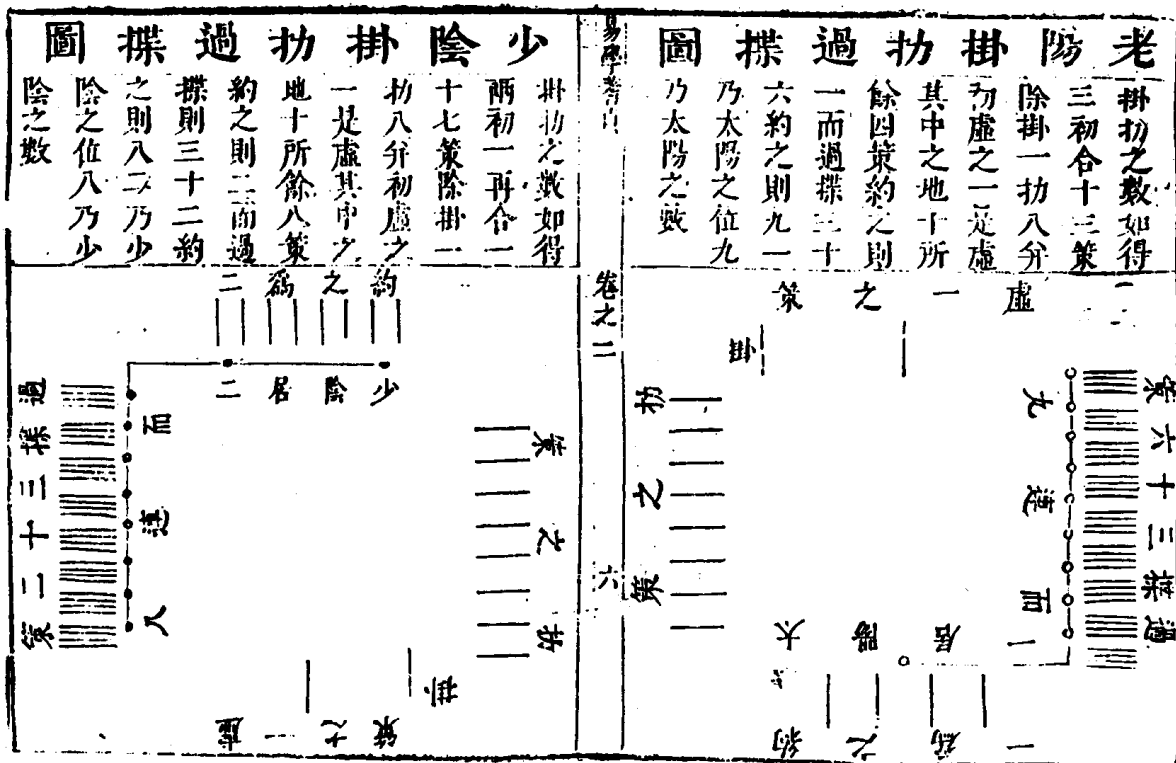 老陽掛扐過揲圖
掛扐之數如得
三初合十三策
除掛一扐八并
初虛之一是虛
其中之地十所
餘四策約之則
一而過揲三十
六約之則九一
乃太陽之位九
乃太陽之數
虛一之策
掛
扐之策
過揲三十六策
太陽居一
而連九
約之為一
易學蓍貞
卷之二
六
少陰掛扐過揲圖
掛扐之數如得
兩初一再合一
十七策除掛一
扐八并初虛之
一是虛其中之
地十所餘八策
約之則二而過
揲則三十二約
之則八二乃少
陰之位八乃少
陰之數
約之為二
少陰居二
而連八
過揲三十二策
扐之策
掛
虛一之策